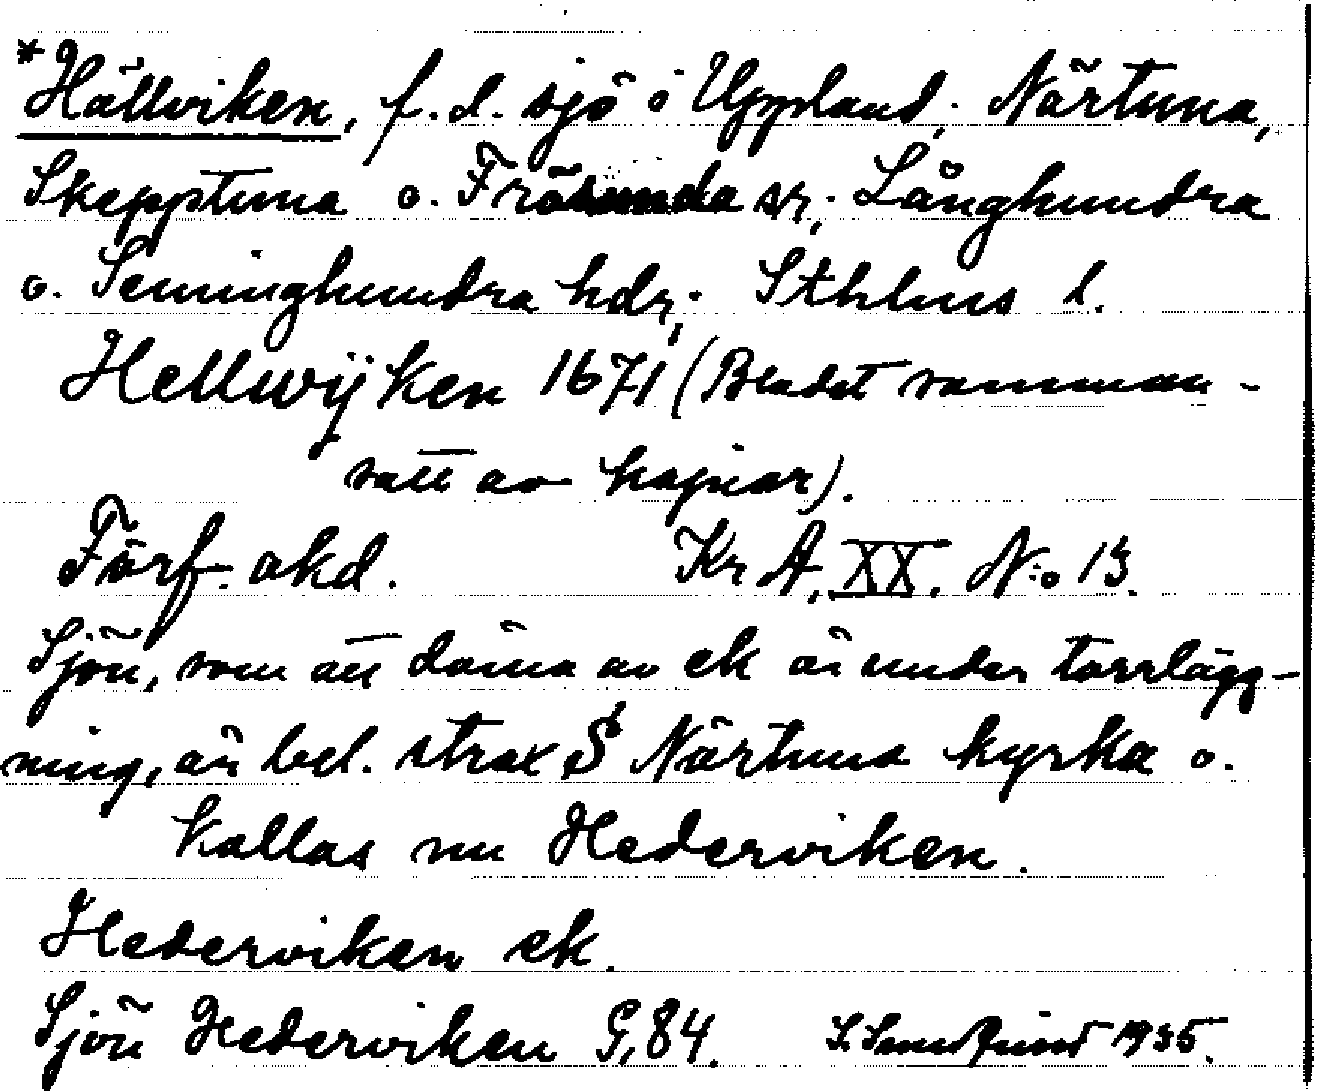 *Hällviken, f.d. sjö i Uppland; Närtuna,
Skepptuna o. Frösunda snr; Långhundra
o. Seminghundra hdr; Sthlms l.
Hellwijken 1671 (Bladet samman-
satt av kopior).
Förf. okd. KrA, XX. N:o 13.
Sjön, som att döma av ek är under torrlägg-
ning, är bel. strax S Närtuna kyrka o.
kallas nu Hederviken.
Hederviken ek.
Sjön Hederviken G, 84. 1935.